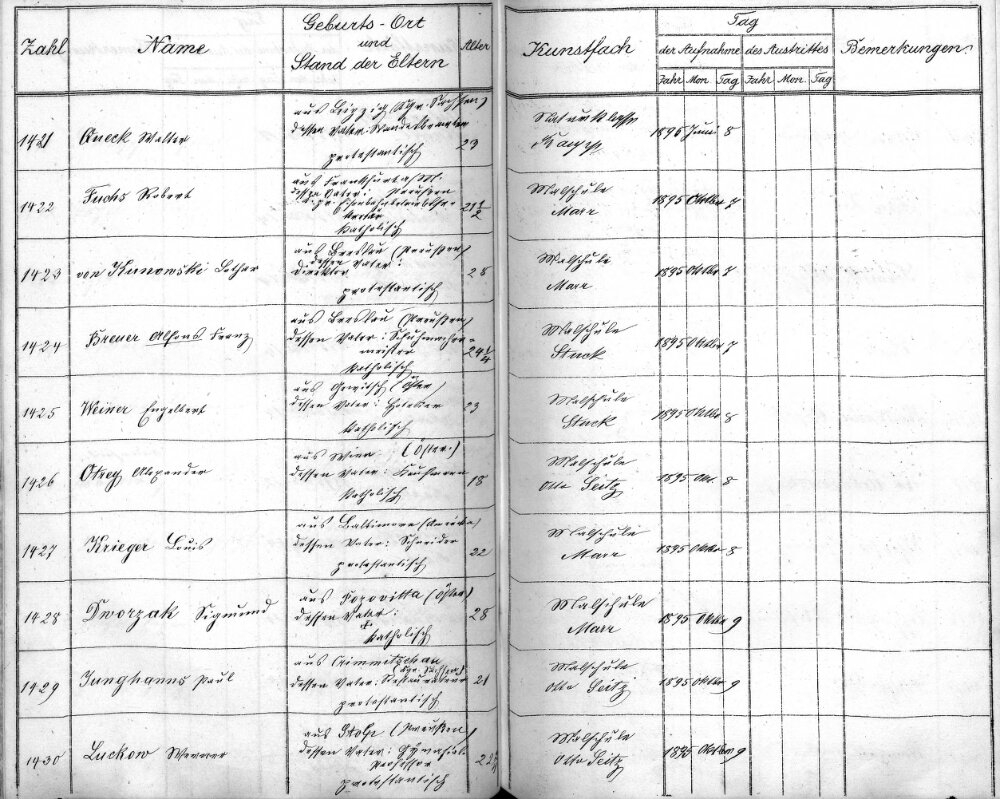 Zahl Name Geburts-Ort und Stand der Eltern Alter Kunstfach Tag Bemerkungen
der Aufnahme des Austrittes
Jahr Mon Tag Jahr Mon. Tag
1421 Queck Walter
aus Leipzig (Kgr. Sachsen)
dessen Vater:
protestantisch
23
Naturklasse
1895 Juni 8
1422 Fuchs Robert
aus Frankfurt a/M.
dessen Vater: Preussen
katholisch
21 1/2
Malschule
Marr
1895 Oktber 7
1423 von Kunowski Lothar
aus Breslau (Preußen)
dessen Vater:
Direktor
protestantisch
28
Malschule
Marr
1895 Oktbr 7
1424 Breuer Alfons Franz
aus Breslau (Preußen)
dessen Vater: Schuhmacher-
meister
katholisch
24 1/4
Malschule
Stuck
1895 Oktber 7
1425 Weiner Engelbert
aus Gewitsch (Öster)
dessen Vater:
katholisch
23
Malschule
Stuck
1895 Oktber 8
1426 Otrey Alexander
aus Wien (Öster.)
dessen Vater: Kaufmann
katholisch
18
Malschule
Otto Seitz
1895 Okt. 8
1427 Krieger Louis
aus Baltimore
dessen Vater: Schneider
protestantisch
22
Malschule
Marr
1895 Oktbr 8
1428 Dworzak Sigmund
aus (Öster)
dessen Vater:
katholisch
28
Malschule
Marr
1895 Oktber 9
1429 Junghanns Paul
aus Crimmitschau
(Kgr. Sachsen)
dessen Vater: Restaurateur
protestantisch
21
Malschule
Otto Seitz
1895 Oktber 9
1430 Luckow Werner
aus Stolp (Preußen)
dessen Vater: Gymnasial-
professor
protestantisch
Malschule
Otto Seitz
1895 Oktber 9